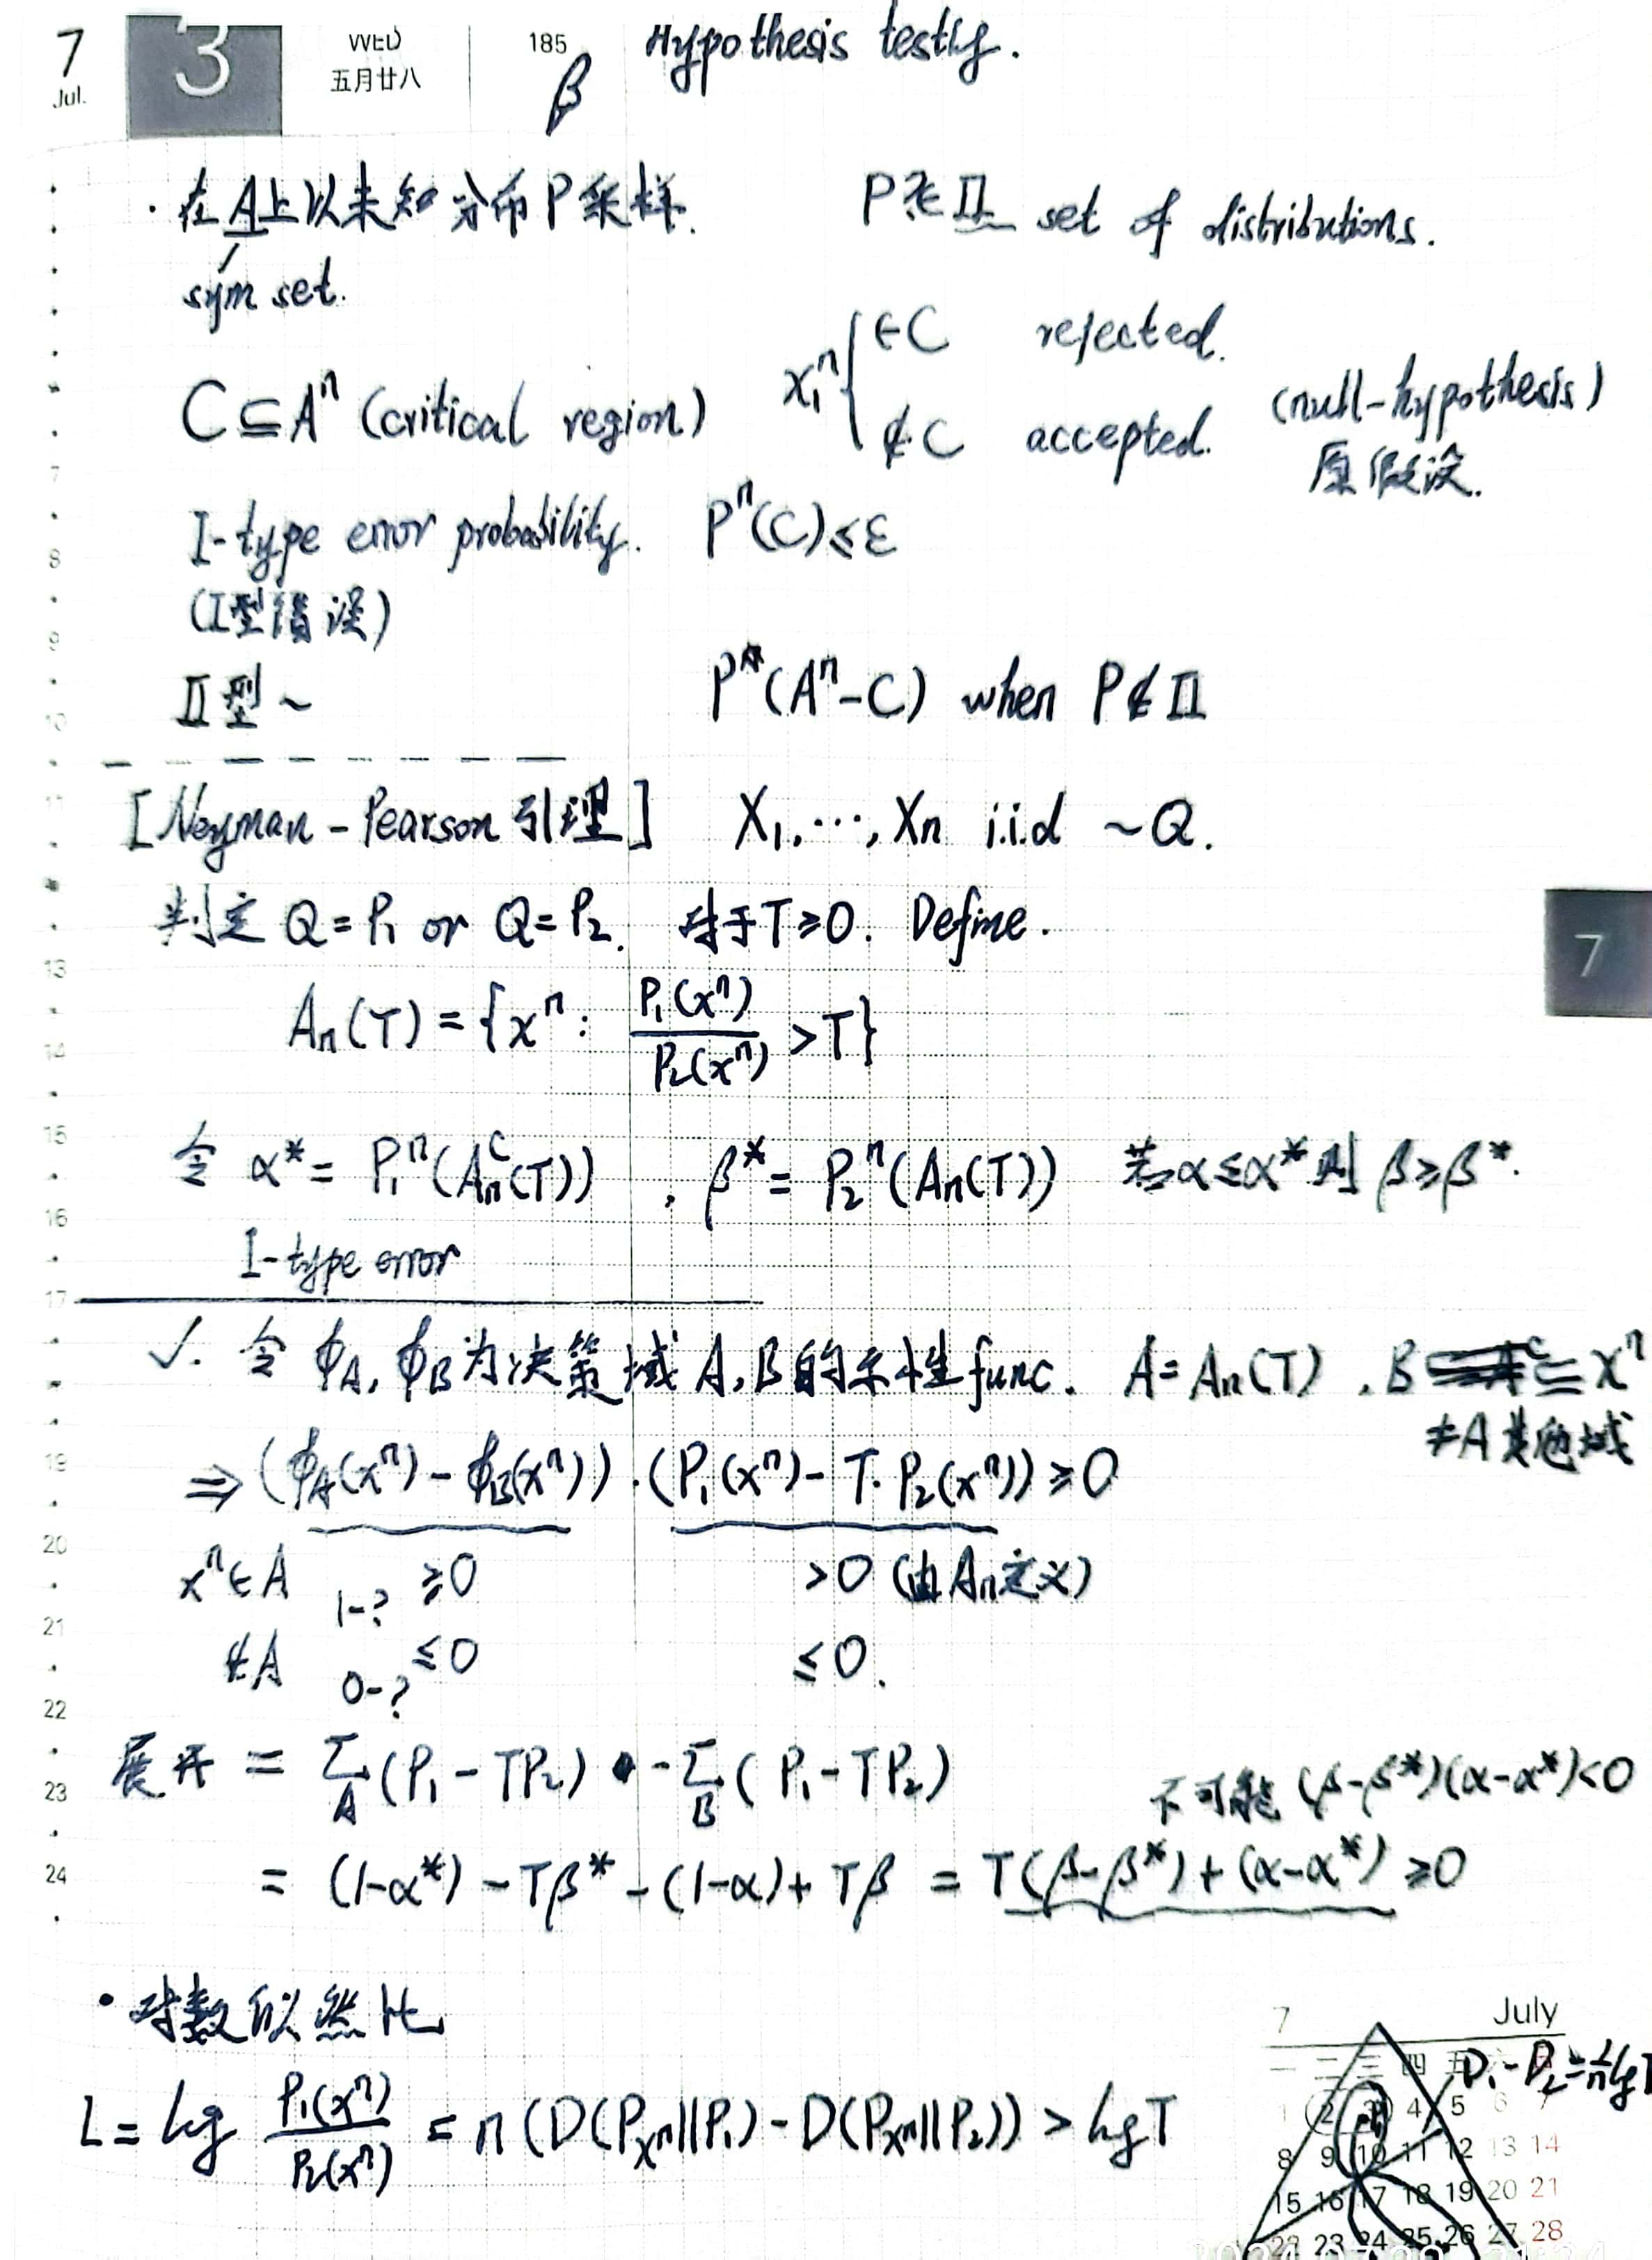 7 3 WED 185 Hypothesis testing.
Jul. 五月廿八 β
· 在A上以未知分布P采样. P ?∈ Π set of distributions.
sym set.
C ⊆ Aⁿ (critical region) x₁ⁿ { ∈C rejected.
∉C accepted. (null-hypothesis)
原假设.
I-type error probability. Pⁿ(C) ≤ ε
(I型错误)
II型~ Pⁿ(Aⁿ-C) when P∉Π
[Neyman-Pearson引理] X₁,…,Xn i.i.d ~Q.
判定 Q=P₁ or Q=P₂. 对于T≥0. Define.
An(T) = {xⁿ: P₁(xⁿ)/P₂(xⁿ) > T}
令 α* = P₁ⁿ(Anᶜ(T)), β* = P₂ⁿ(An(T)) 若α≤α*则 β≥β*.
I-type error
√. 令 ϕA, ϕB为决策域A,B的示性func. A=An(T). B ⊆ xⁿ
≠A其他域
⇒ (ϕA(xⁿ) - ϕB(xⁿ))·(P₁(xⁿ) - T·P₂(xⁿ)) ≥ 0
xⁿ∈A 1-? ≥0 >0 (由An定义)
∉A 0-? ≤0 ≤0.
展开 = Σ_A (P₁-TP₂) - Σ_B (P₁-TP₂)
不可能 (β-β*)(α-α*)<0
= (1-α*) - Tβ* - (1-α) + Tβ = T(β-β*) + (α-α*) ≥ 0
· 对数似然比
L = log P₁(xⁿ)/P₂(xⁿ) = n(D(Pxⁿ||P₁) - D(Pxⁿ||P₂)) > log T
D₁-D₂ = 1/n log T
7
8
9
10
11
12
13
14
15
16
17
18
19
20
21
22
23
24
7
7 July
一 二 三 四 五
1 2 3 4 5 6 7
8 9 10 11 12 13 14
15 16 17 18 19 20 21
22 23 24 25 26 27 28